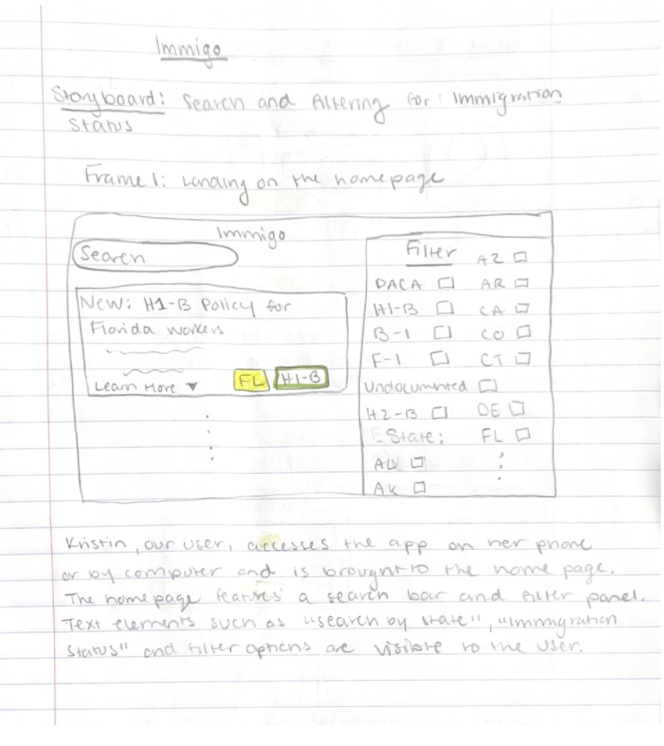 Immigo
Storyboard: Search and Filtering for Immigration
Status
Frame 1: Landing on the homepage
Immigo
Search
New: H1-B Policy for
Florida workers
Learn More ▼
FL
H1-B
Filter
DACA
H1-B
B-1
F-1
Undocumented
H2-B
State:
AK
AZ
AR
CA
CO
CT
DE
FL
Kristin, our user, accesses the app on her phone
or by computer and is brought to the home page.
The homepage features a search bar and filter panel.
Text elements such as "search by state", "Immigration
Status" and filter options are visible to the user.